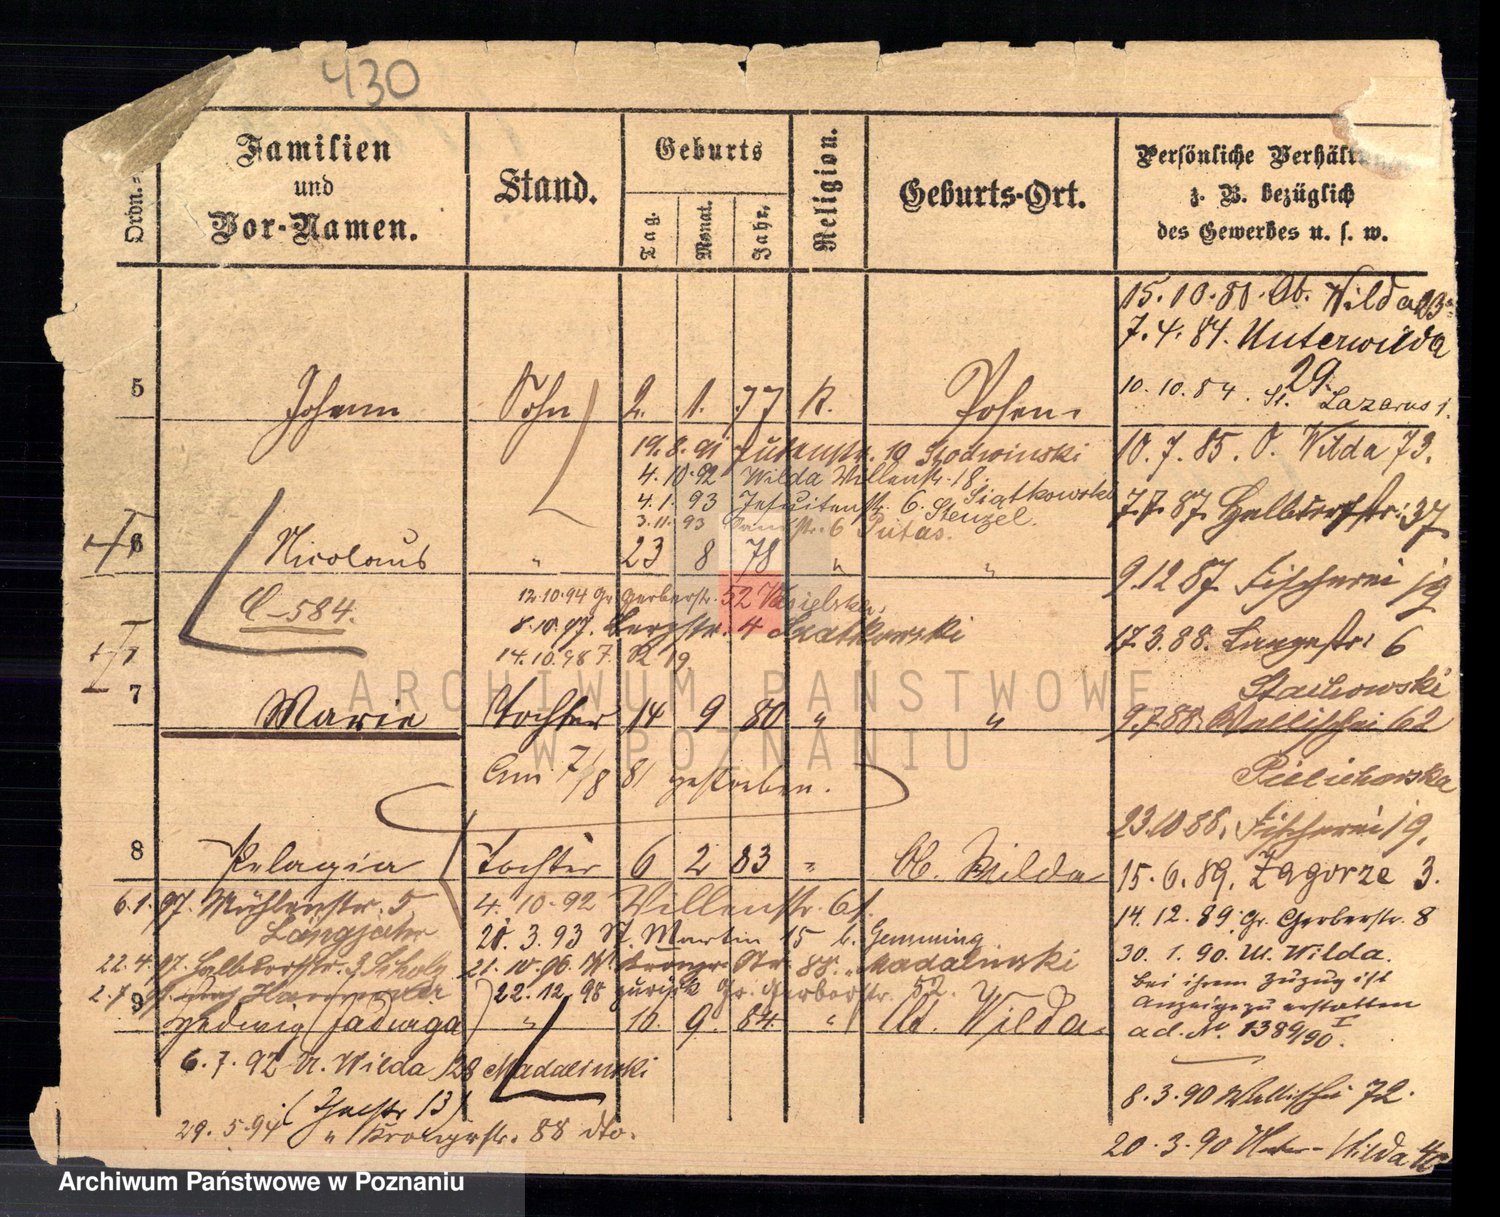 430
Ordn.=
Familien
und
Vor-Namen.
Stand.
Geburts
Tag.
Monat.
Jahr.
Religion.
Geburts-Ort.
Persönliche Verhält
z. B. bezüglich
des Gewerbes u. s. w.
15.10.81. Ob. Wilda 23
7.4.84. Unterwilda
29.
10.10.84. St. Lazarus 1.
5 Johann Sohn 2. 1. 77 K. Posen.
19.8.91 10
4.10.92 Wilda 18. Siatkowski
4.1.93 Jesuitenstr. 6. Stenzel.
3.11.93 6 Putas.
10.7.85. O. Wilda 73.
7.7.87. Halbdorfstr. 37
6 Nicolaus " 23 8 78 " "
C-584.
12.10.94 Gr. Gerberstr. 52
8.10.97. Bergstr. 4
14.10.98 19
9.12.87. Fischerei 19
17.3.88. Langestr. 6
Stachowski
7 Marie Tochter 14 9 80 " "
9.7.88. Wallischei 62
am 7/8 81 gestorben.
23.10.88. Fischerei 19.
8 Pelagia Tochter 6 2 83 " Ob. Wilda
15.6.89. Zagorze 3.
6.1.97. Mühlenstr. 5
4.10.92 61.
14.12.89. Gr. Gerberstr. 8
28.3.93 St. Martin 15 b. Gemming.
22.4.97. Halbdorfstr. 3 Scholz
21.10.96. 88. Madalinski
30.1.90. U. Wilda.
Bei ihrem Zuzug ist
Anzeige zu erstatten
ad. No. 1389/90 I.
22.12.98 zurück Gr. Gerberstr. 52.
9 Hedwig (Jadwiga) " 10. 9. 84. " U. Wilda.
6.7.92 U. Wilda 28 Madalinski
29.5.94 " Kronprstr. 88 dto.
8.3.90 Wallischei 72.
20.3.90 Unter-Wilda
ARCHIWUM PAŃSTWOWE
W POZNANIU
Archiwum Państwowe w Poznaniu